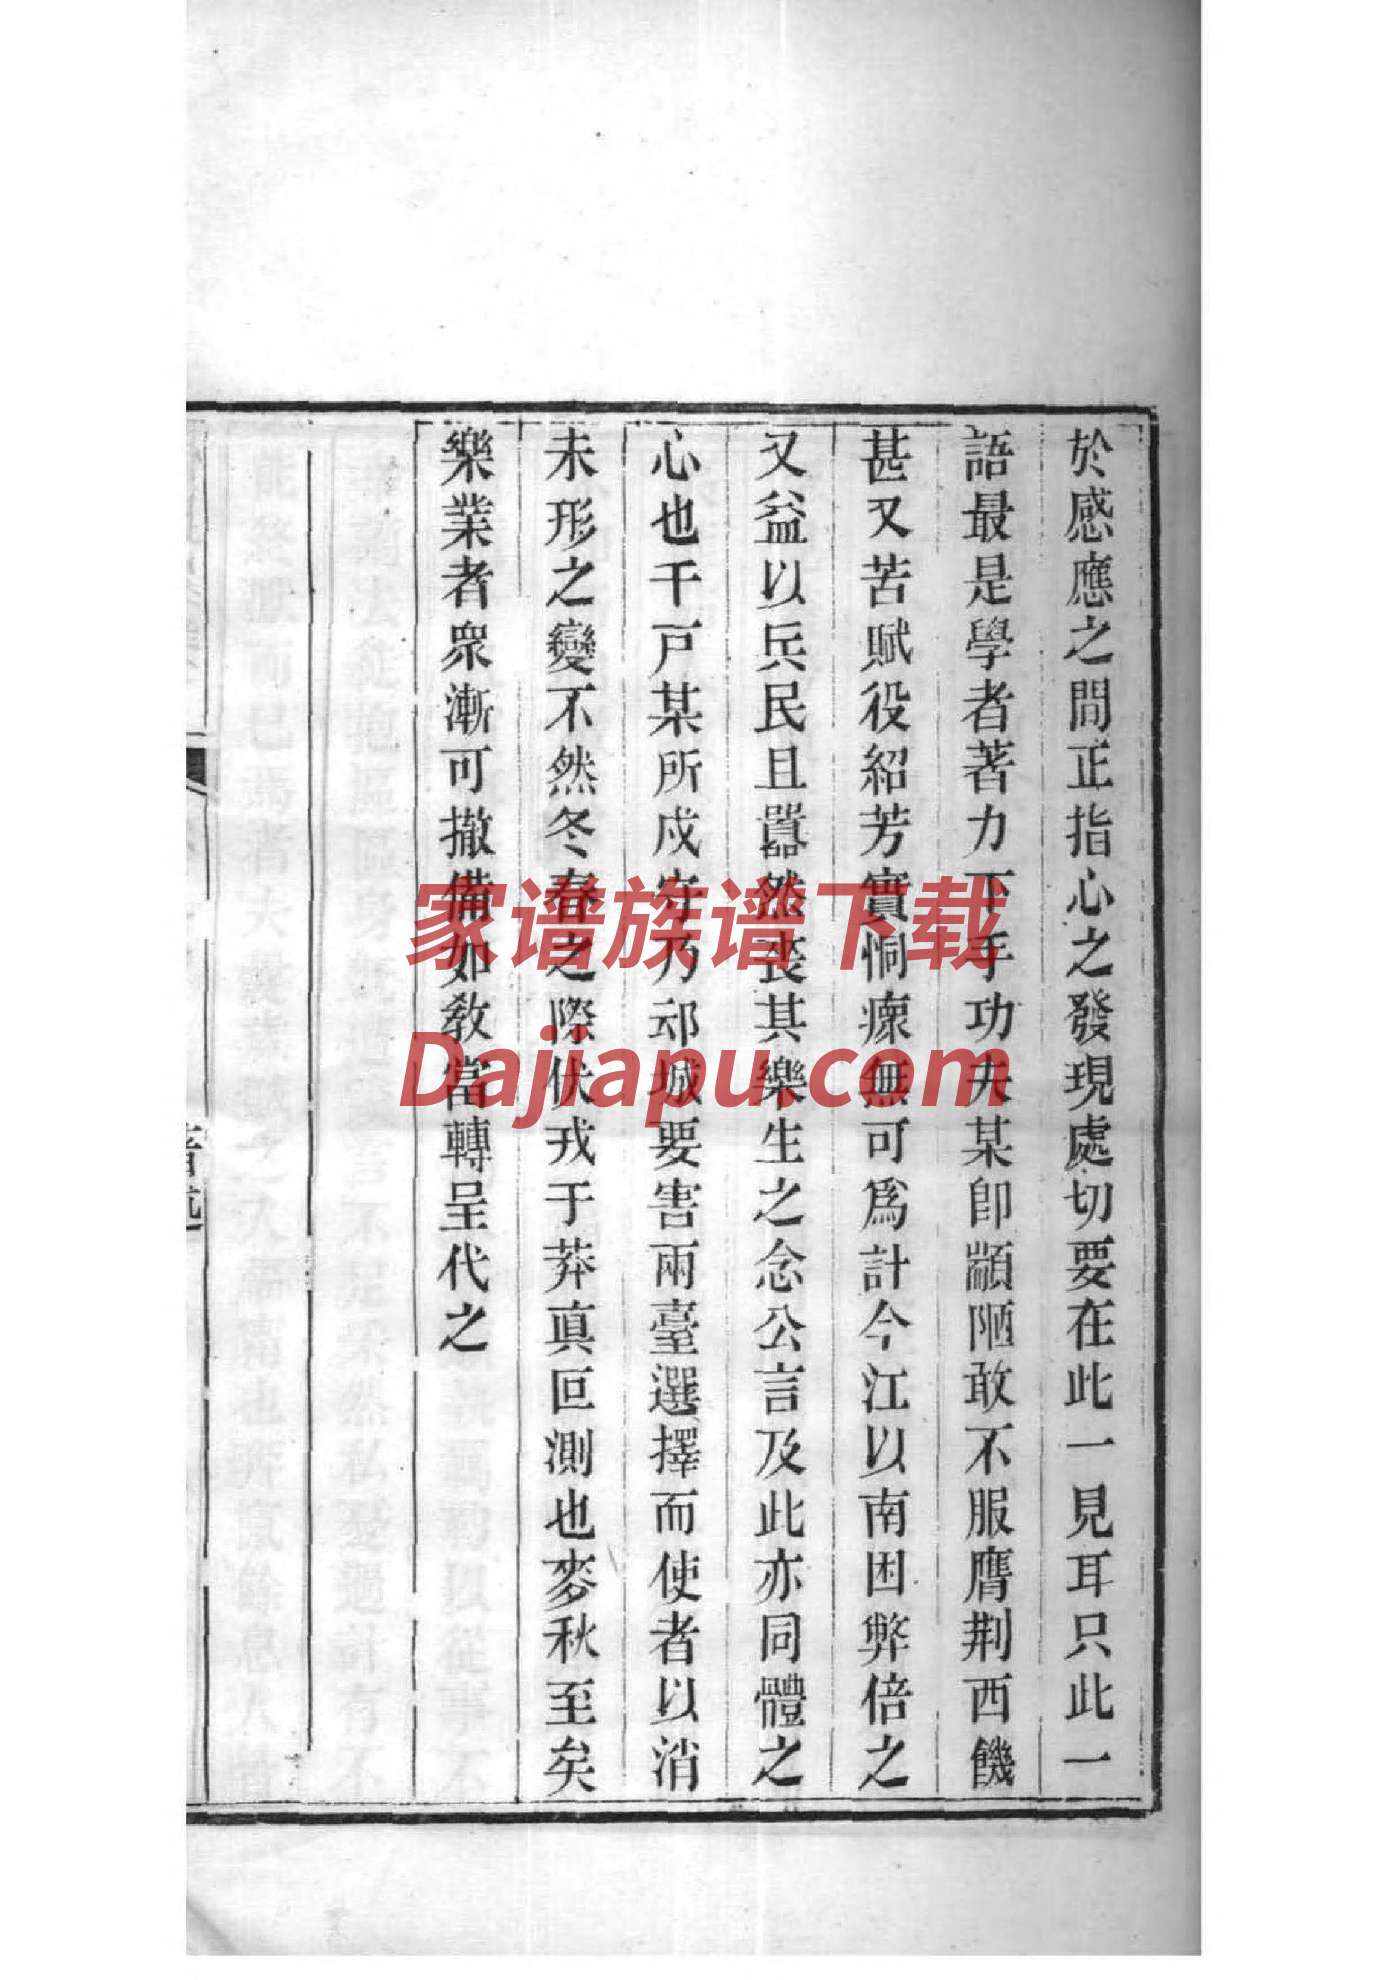 於感應之間正指心之發現處切要在此一見耳只此一
語最是學者著力下手功夫某卽顓陋敢不服膺荆西饑
甚又苦賦役紹芳實恫瘝無可爲計今江以南困弊倍之
又益以兵民且囂然喪其樂生之念公言及此亦同體之
心也千戸某所戍守乃邛城要害兩臺選擇而使者以消
未形之變不然冬春之際伏戎于莽眞叵測也麥秋至矣
樂業者衆漸可撤備如敎當轉呈代之
家谱族谱下载
Dajiapu.com